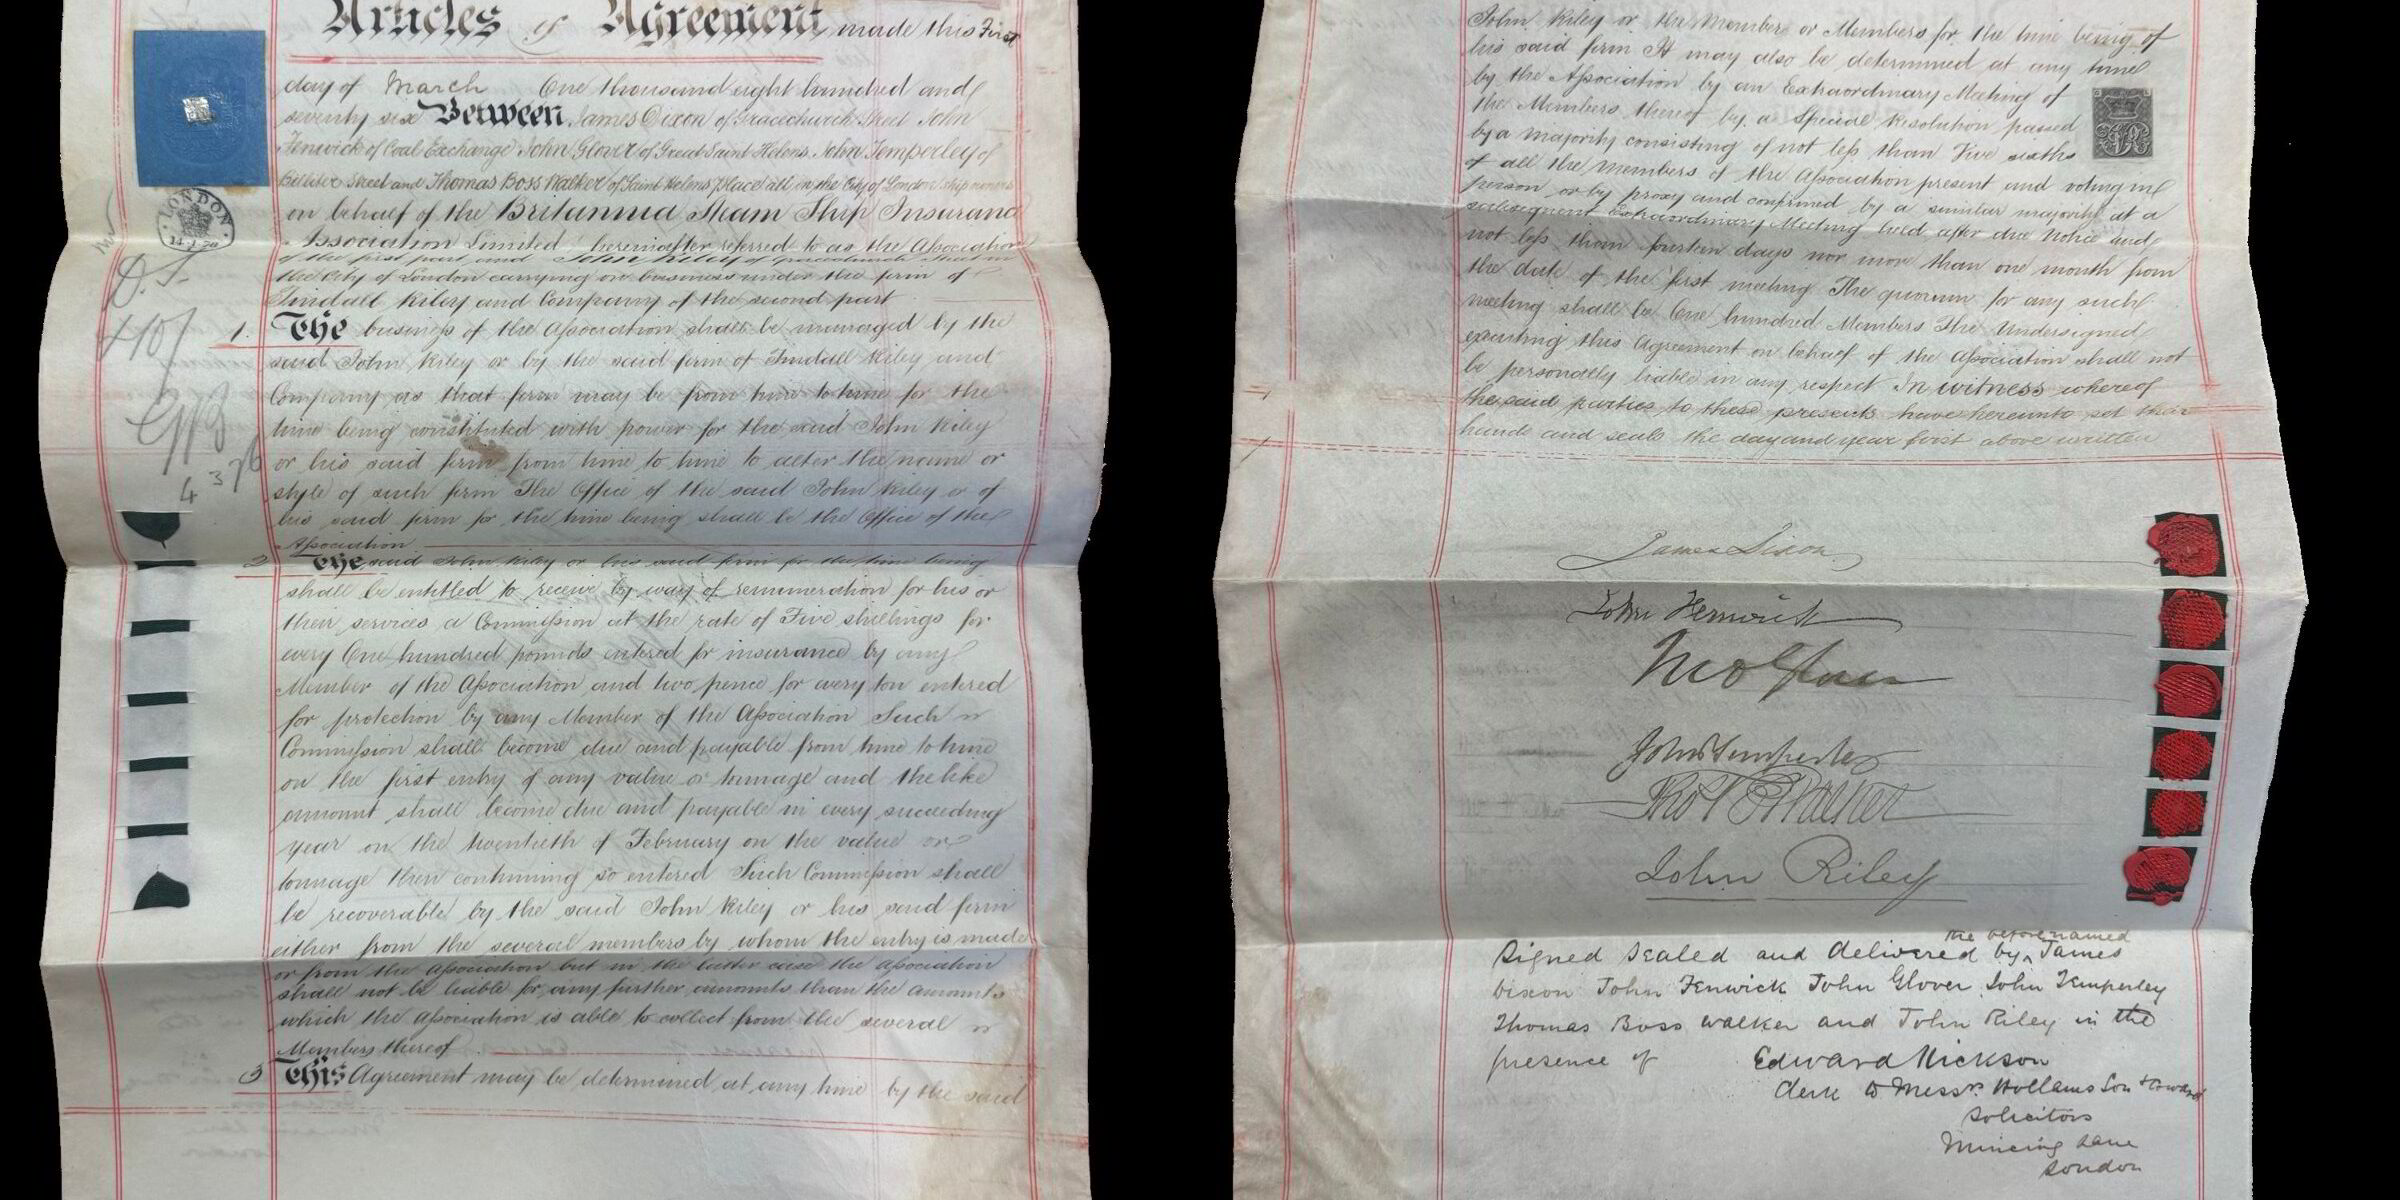 Articles of Agreement made this First
day of March One thousand eight hundred and
seventy six Between James Dixon of Gracechurch Street John
Fenwick of Coal Exchange John Glover of Great Saint Helens John Temperley of
Billiter Street and Thomas Boss Walker of Saint Helens Place all in the City of London ship owners
on behalf of the Britannia Steam Ship Insurance
Association Limited hereinafter referred to as the Association
of the first part and John Riley of Gracechurch Street in
the City of London carrying on business under the firm of
Tindall Riley and Company of the second part
LONDON
D.T.
1. The business of the Association shall be managed by the
said John Riley or by the said firm of Tindall Riley and
Company as that firm may be from time to time for the
time being constituted with power for the said John Riley
or his said firm from time to time to alter the name or
style of such firm The Office of the said John Riley or of
his said firm for the time being shall be the Office of the
Association
2 The said John Riley or his said firm for the time being
shall be entitled to receive by way of remuneration for his or
their services a Commission at the rate of Five shillings for
every One hundred pounds entered for insurance by any
Member of the Association and two pence for every ton entered
for protection by any Member of the Association Such
Commission shall become due and payable from time to time
on the first entry of any value or tonnage and the like
amount shall become due and payable in every succeeding
year on the twentieth of February on the value or
tonnage then continuing so entered Such Commission shall
be recoverable by the said John Riley or his said firm
either from the several members by whom the entry is made
or from the Association but in the latter case the Association
shall not be liable for any further amounts than the amounts
which the Association is able to collect from the several
Members thereof
3 This Agreement may be determined at any time by the said
John Riley or the Member or Members for the time being of
his said firm It may also be determined at any time
by the Association by an Extraordinary Meeting of
the Members thereof by a Special Resolution passed
by a majority consisting of not less than Five sixths
of all the Members of the Association present and voting in
person or by proxy and confirmed by a similar majority at a
subsequent Extraordinary Meeting held after due Notice and
not less than fourteen days nor more than one month from
the date of the first meeting The quorum for any such
meeting shall be One hundred Members The Undersigned
executing this Agreement on behalf of the Association shall not
be personally liable in any respect In witness whereof
the said parties to these presents have hereunto set their
hands and seals the day and year first above written
James Dixon
John Fenwick
John Temperley
Thos B Walker
John Riley
the before named
Signed Sealed and delivered by James
Dixon John Fenwick John Glover John Temperley
Thomas Boss Walker and John Riley in the
presence of Edward Hickson
Clerk to Messrs. Hollams Son & Coward
Solicitors
Mincing Lane
London